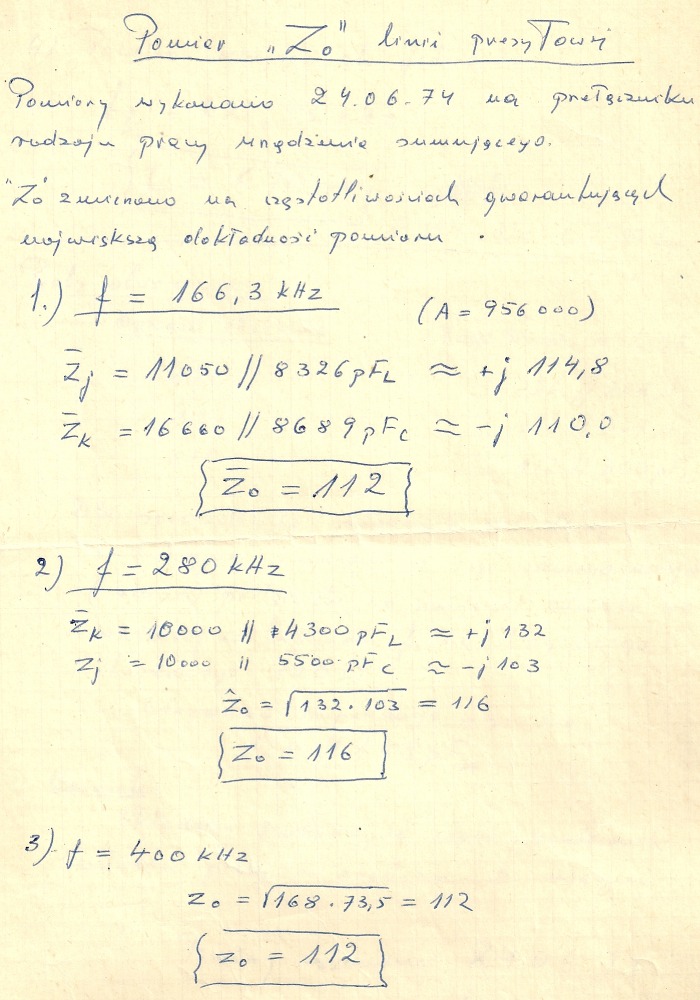 Pomiar „Zo" linii przesyłowej
Pomiary wykonano 24.06.74 na przełączniku
rodzaju pracy urządzenia sumującego.
"Zo" zmierzono na częstotliwościach gwarantujących
największą dokładność pomiaru .
1.) f = 166,3 kHz (A = 956000)
Z̄j = 11050 // 8326 pFL ≈ +j 114,8
Z̄k = 16660 // 8689 pFc ≈ -j 110,0
Z̄o = 112
2) f = 280 kHz
Z̄k = 10000 // 4300 pFL ≈ +j 132
Zj = 10000 // 5500 pFc ≈ -j 103
Ẑo = √132 · 103 = 116
Zo = 116
3) f = 400 kHz
Zo = √168 · 73,5 = 112
Zo = 112